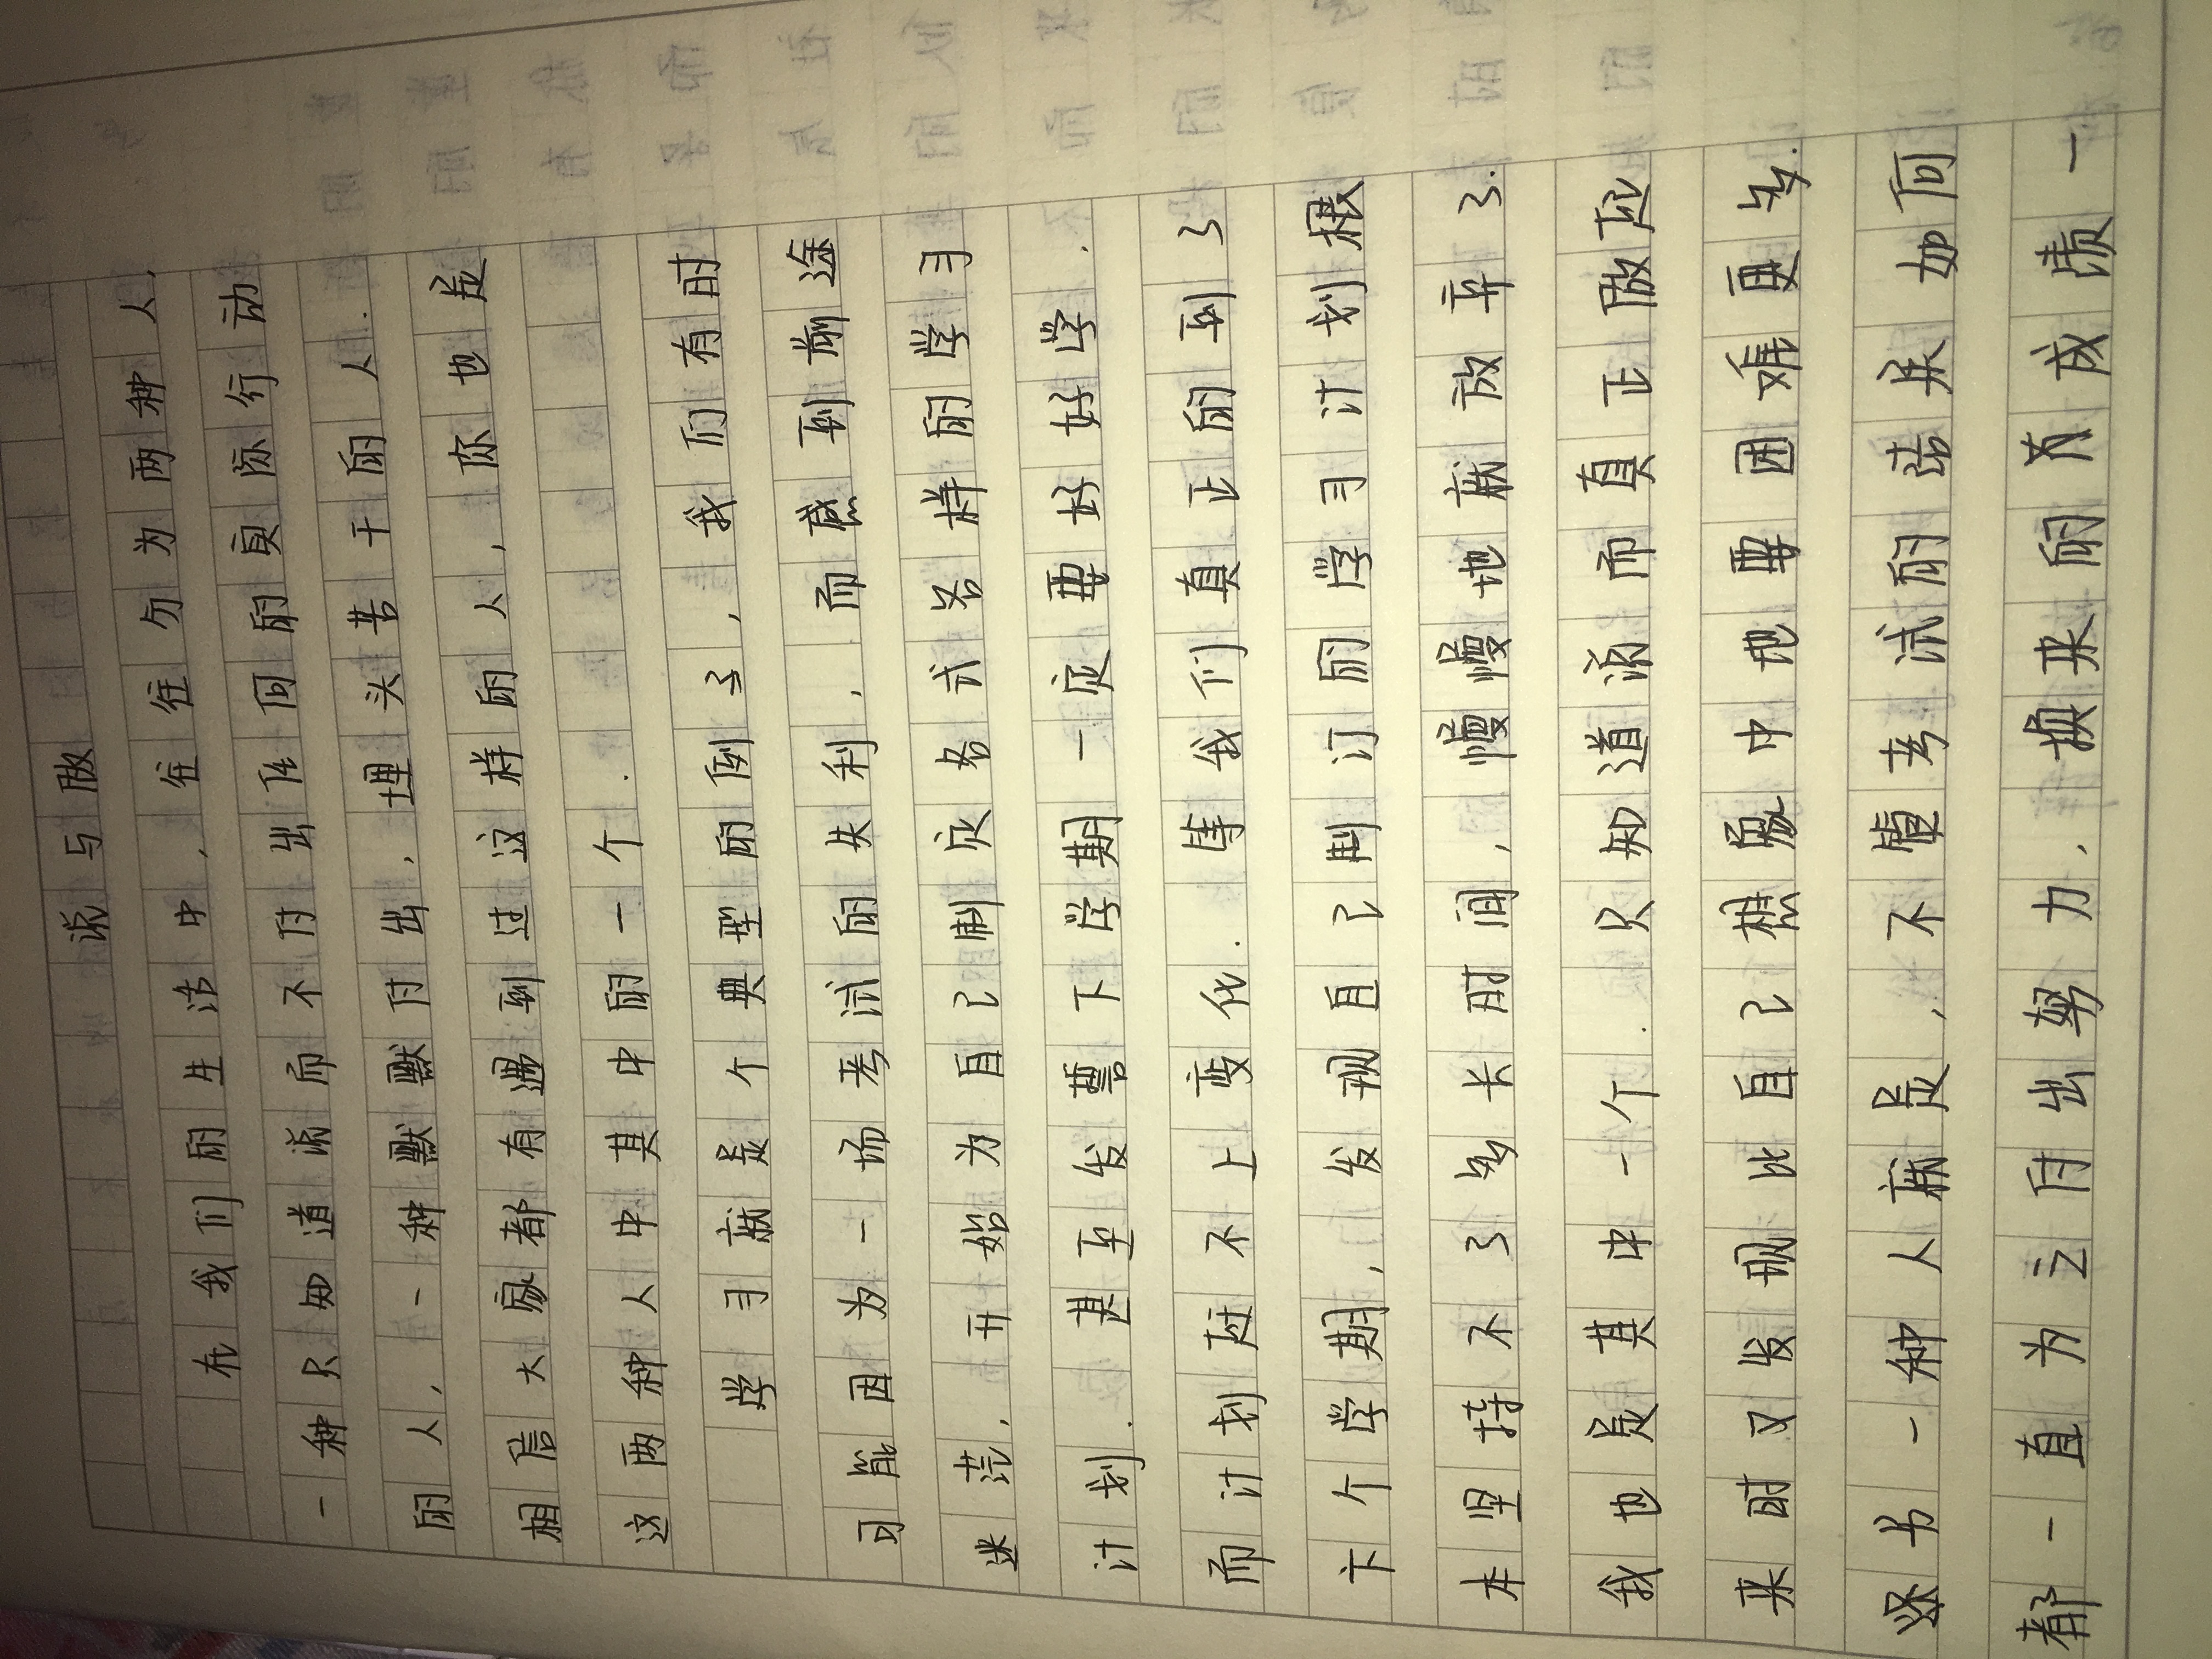 说与做
在我们的生活中，往往分为两种人，
一种只知道说而不付出任何的实际行动
的人，一种默默付出，埋头苦干的人.
相信大家都有遇到过这样的人，你也是
这两种人中其中的一个.
学习就是个典型的例子，我们有时
可能因为一场考试的失利，而感到前途
迷茫，开始为自己制定各式各样的学习
计划.甚至发誓下学期一定要好好学.
而计划赶不上变化.等我们真正的到了
下个学期，发现自己制订的学习计划根
本坚持不了多长时间，慢慢慢地就放弃了.
我也是其中一个.只知道说而真正做起
来时又发现比自己想象中地要困难更多.
还有一种人就是，不管考试的结果如何
都一直为之付出努力，换来的好成绩一